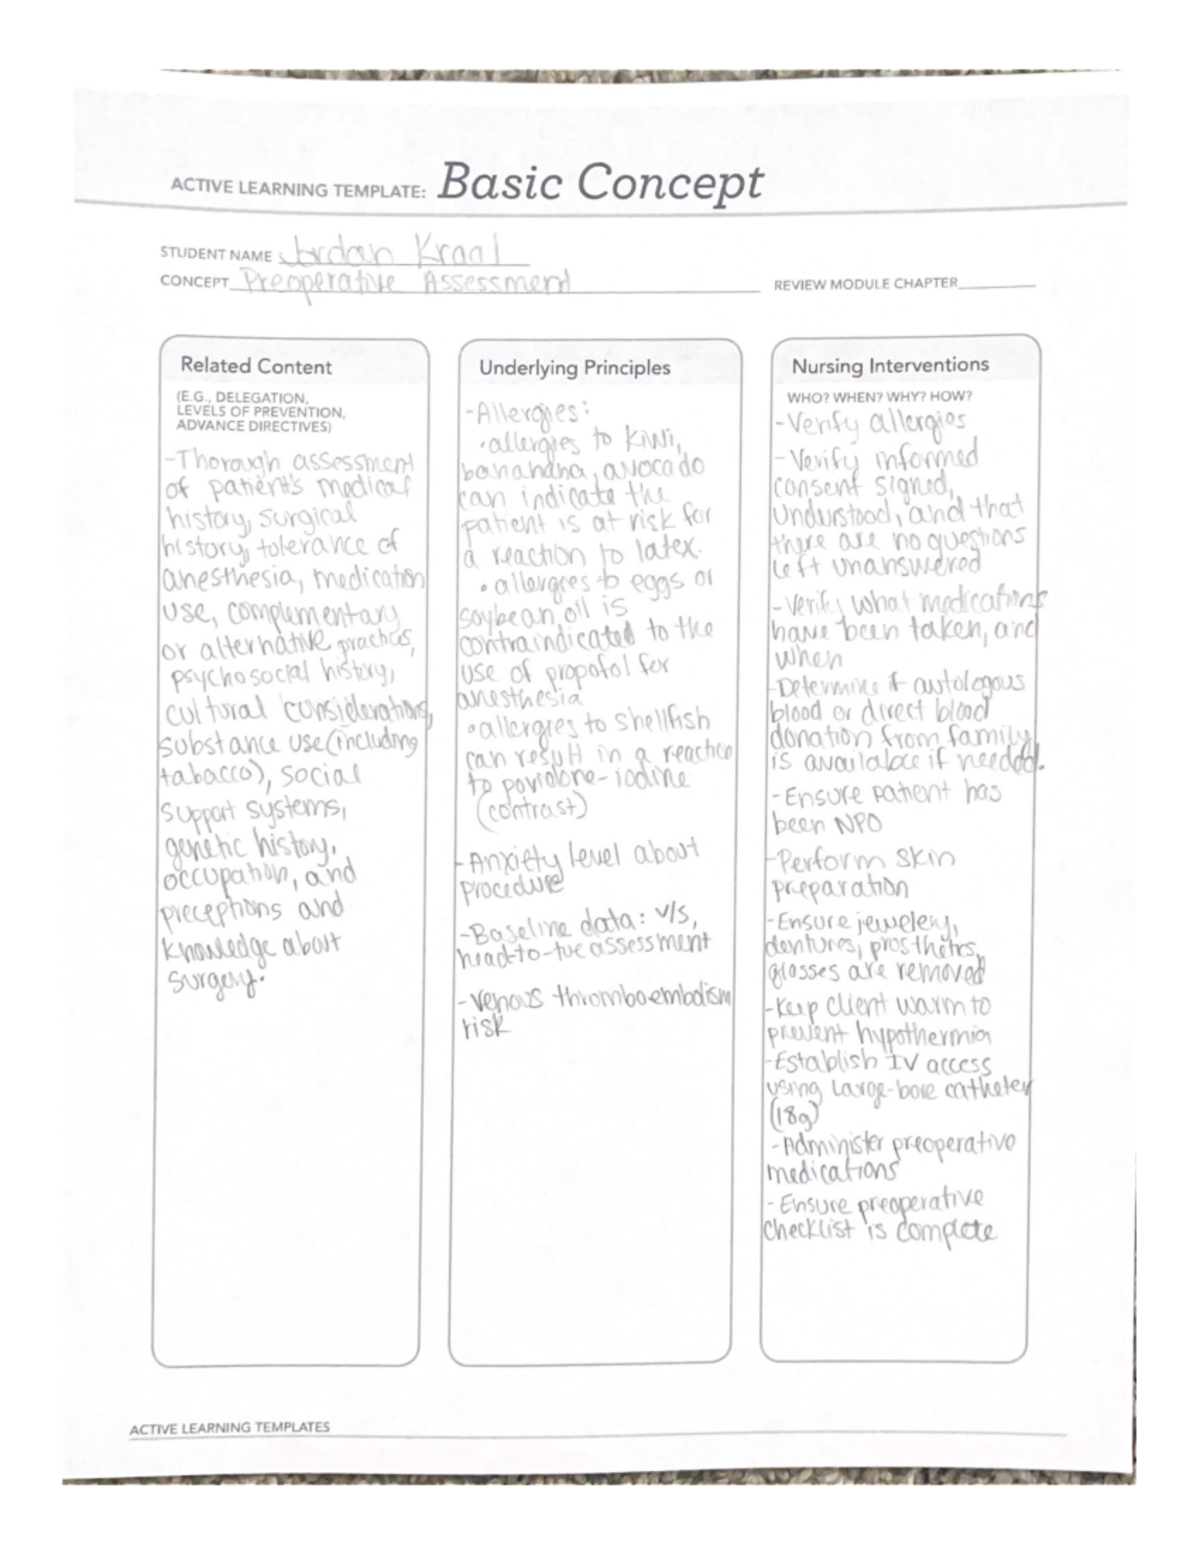 ACTIVE LEARNING TEMPLATE: Basic Concept
STUDENT NAME Jordan Kraal
CONCEPT Preoperative Assessment
REVIEW MODULE CHAPTER
Related Content
(E.G., DELEGATION,
LEVELS OF PREVENTION,
ADVANCE DIRECTIVES)
-Thorough assessment
of patient's medical
history, surgical
history, tolerance of
anesthesia, medication
use, complementary
or alternative practices,
psychosocial history,
cultural considerations,
substance use(including
tabacco), social
support systems,
genetic history,
occupation, and
preceptions and
knowledge about
surgery.
Underlying Principles
-Allergies:
•allergies to kiwi,
bananana, avocado
can indicate the
patient is at risk for
a reaction to latex.
•allergies to eggs or
soybean oil is
contraindicated to the
use of propofol for
anesthesia
•allergies to shellfish
can result in a reaction
to povidone-iodine
(contrast)
-Anxiety level about
procedure
-Baseline data: v/s,
head-to-toe assessment
-Venous thromboembolism
risk
Nursing Interventions
WHO? WHEN? WHY? HOW?
-Verify allergies
-Verify informed
consent signed,
understood, and that
there are no questions
left unanswered
-Verify what medications
have been taken, and
when
-Determine if autologous
blood or direct blood
donation from family
is available if needed.
-Ensure patient has
been NPO
-Perform skin
preparation
-Ensure jewelery,
dentures, prosthetics,
glasses are removed
-Keep client warm to
prevent hypothermia
-Establish IV access
using large-bore catheter
(18g)
-Administer preoperative
medications
-Ensure preoperative
checklist is complete
ACTIVE LEARNING TEMPLATES